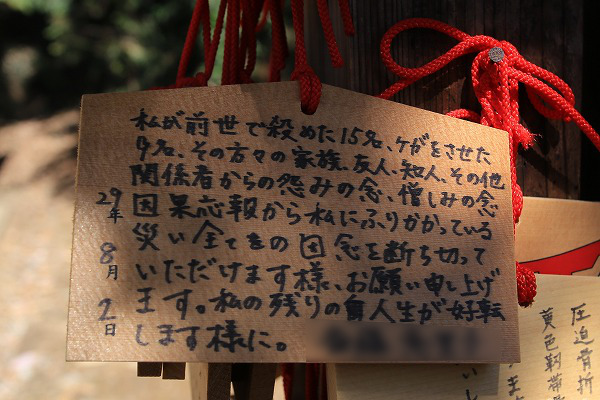 私が前世で殺めた15名、ケガをさせた
9名、その方々の家族、友人、知人、その他
関係者からの怨みの念、憎しみの念
因果応報から私にふりかかっている
災い全てをの因念を断ち切って
いただけます様、お願い申し上げ
ます。私の残りの人生が好転
します様に。
29年
8月
2日
圧迫骨折
黄色靭帯